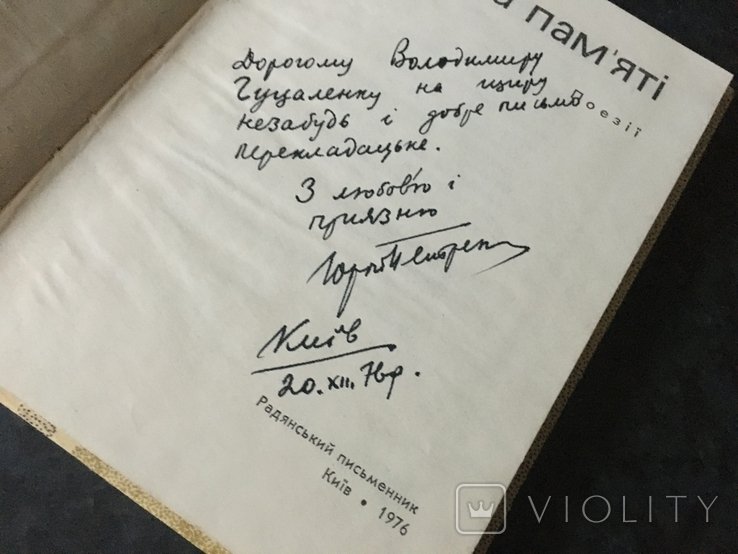 пам'яті
Поезії
Дорогому Володимиру
Гуцаленку на щиру
незабудь і добре письмо
перекладацьке.
З любов'ю і
приязню
Київ
20. XII. 76р.
Радянський письменник
Київ • 1976
VIOLITY